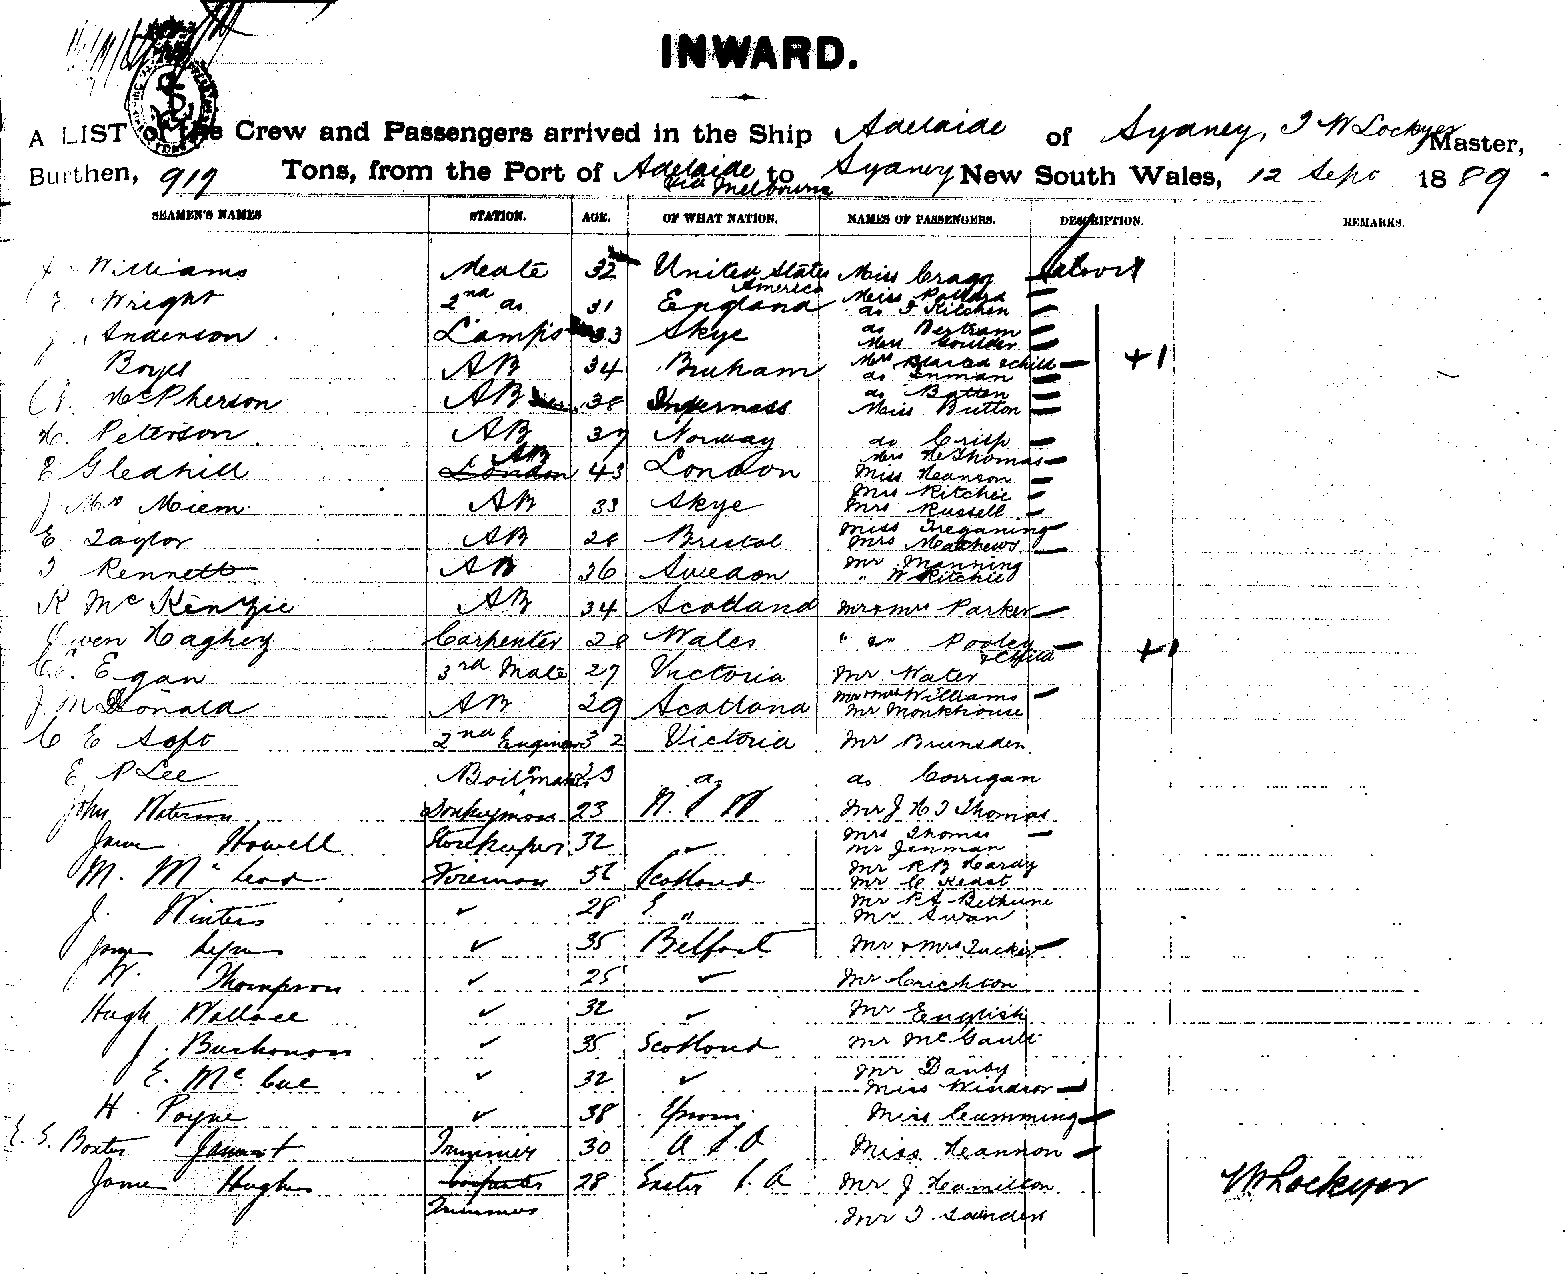 INWARD.
A LIST of the Crew and Passengers arrived in the Ship Adelaide of Sydney, T W Lockyer Master,
Burthen, 919 Tons, from the Port of Adelaide via Melbourne to Sydney New South Wales, 12 Sept 1889
SEAMEN'S NAMES STATION. AGE. OF WHAT NATION. NAMES OF PASSENGERS. DESCRIPTION. REMARKS.
J Williams Meate 32 United States America Miss Cragg Saloon
E Wright 2nd do 31 England Miss Pollard
do T Kitchen
J Anderson Lamps 33 Skye do Bertram
Miss Goulder
Boyes AB 34 Mrs child +1
do Inman
McPherson AB 38 Inverness do Batten
Miss Button
H. Peterson AB 37 Norway do Crisp
E Gledhill London AB 43 London Mrs H Thomas
Miss Hearson
J Mc Miem AB 33 Skye Mrs Ritchie
Mrs Russell
E Taylor AB 28 Bristol Miss Treganing
Mrs Matthews
T Rennett AB 36 Sweedon Mr Manning
" W Ritchie
R McKenzie AB 34 Scotland Mr & Mrs Parker
Owen Haghey Carpenter 28 Wales " & " Pooley & Child +1
C. Egan 3rd Mate 27 Victoria Mr Water
J McDonald AB 29 Scotland Mr & Mrs Williams
Mr Monkhouse
C E Soft 2nd Engineer 32 Victoria Mr Brunsden
E P Lee 23 do do Corrigan
John Waterson Donkeyman 23 N. S W Mr J H T Thomas
James Howell Storekeeper 32 ✓ Mrs Thomas
Mr Jenman
M. McLeod Fireman 36 Scotland Mr R B Hardy
Mr C Keast
J. Winters ✓ 28 E " Mr R S Bethune
Mr Swan
James Lyons ✓ 35 Belfast Mr & Mrs Tucker
W. Thompson ✓ 25 ✓ Mr Crichton
Hugh Wallace ✓ 32 ✓ Mr English
J. Buchanan ✓ 35 Scotland Mr McGault
E. McCue ✓ 32 ✓ Mr Danby
Miss Windsor
H. Payne ✓ 38 Miss Cumming
E. S. Baxter Trimmer 30 Miss Heannon
James Hughes Trimmer 28 Exeter S. A Mr J Hamilton
Mr T Saunders
TW Lockyer